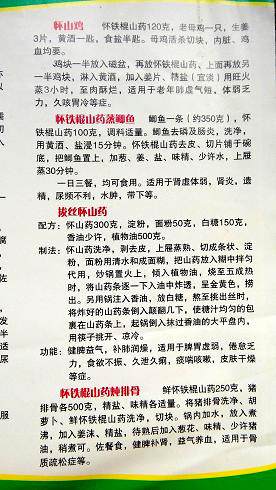 怀山鸡 怀铁棍山药120克,老母鸡一只,生姜
3片,黄酒一匙,食盐半匙。母鸡活条切块,内脏、鸡
血均要。
鸡块一半放入磁盆,再放怀铁棍山药,上面再放另
一半鸡块,淋入黄酒,加入姜片、精盐(宜淡)用旺火
蒸3小时,至肉酥烂,适用于老年肺虚气短,体弱乏
力,久咳胃冷等症。
怀铁棍山药蒸鲫鱼 鲫鱼一条(约350克),怀
铁棍山药100克,调料适量。鲫鱼去鳞及肠炎,洗净,
用黄酒、盐浸15分钟。怀铁棍山药去皮、切片铺于碗
底,把鲫鱼置上,加葱、姜、盐、味精、少许水,上屉
蒸30分钟。
一日三餐,均可食用。适用于肾虚体弱,肾炎,遗
精,尿频不利,水肿,带下等。
拔丝怀山药
配方:怀山药300克,淀粉,面粉50克,白糖150克,
香油少许,植物油500克。
制法:怀山药洗净,剥去皮,上屉蒸熟、切成条状、淀
粉,面粉用清水和成面糊,把山药放入糊中拌匀
代用,炒锅置火上,倾入植物油,烧至五成热
时,将山药条逐一下入油中炸透,呈金黄色,捞
出。另用锅注入香油,放白糖,熬至挑出丝时,
将炸好的山药条倒入颠翻几下,使糖汁均匀的包
裹在山药条上,起锅倒入抹过香油的大平盘内,
用筷子挑开、凉冷。
功能:健脾益气,补肺润燥,适用于脾胃虚弱,倦怠乏
力,食欲不振、久泄久痢,痰喘咳嗽、皮肤干燥
等症。
怀铁棍山药炖排骨 鲜怀铁棍山药250克,猪
排骨各500克,精盐、味精各适量。将猪排骨洗净、胡
萝卜、鲜怀铁棍山药洗净,切块。锅内加水,放入煮
沸,加入姜沫、精盐,待熟后加入葱花、味精、少许猪
油,稍煮可。佐餐食,健脾补肾,益气养血,适用于骨
质疏松症等。